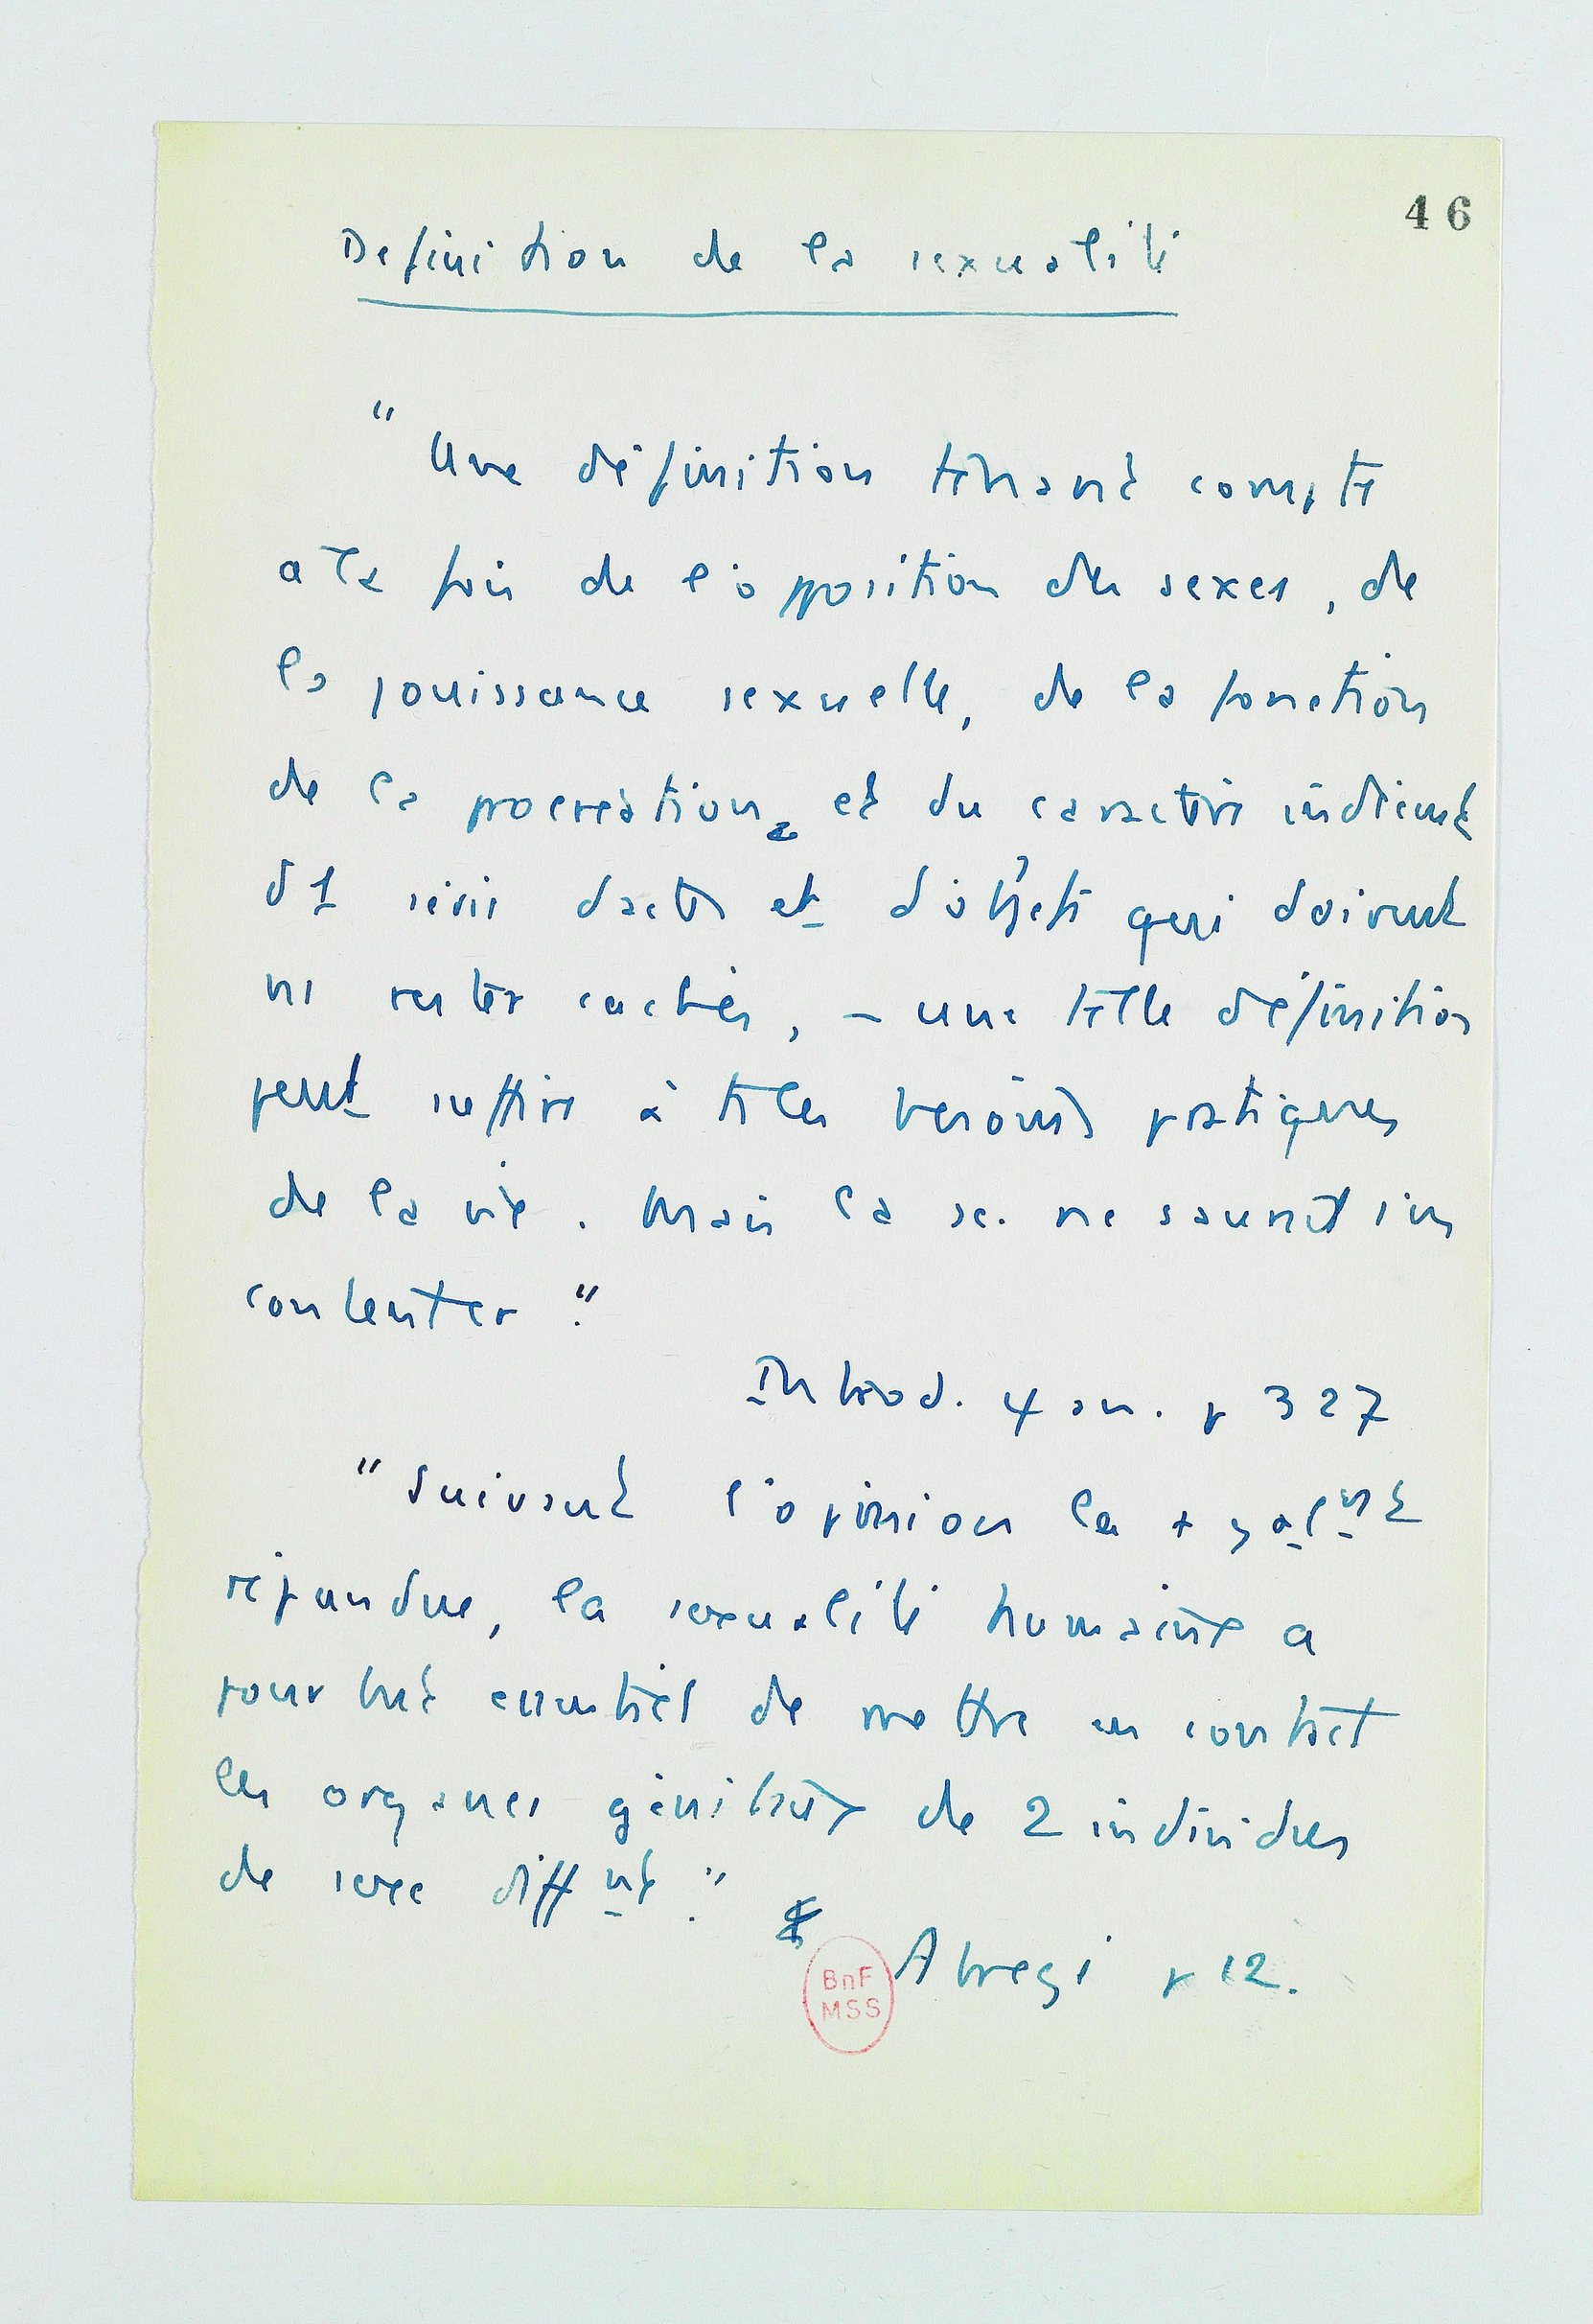 46
Definition de la sexualité
" Une définition tenant compte
a la fois de l'opposition des sexes, de
la jouissance sexuelle, de la fonction
de la procréation, et du caractère indécent
d'1 série d'actes et d'objets qui doivent
rester cachés, – une telle définition
peut suffire à ts les besoins pratiques
de la vie. Mais la sc. ne saurait s'en
contenter."
Introd. ψ an. p 327
" Suivant l'opinion la + galnt
répandue, la sexualité humaine a
pour but essentiel de mettre en contact
les organes génitaux de 2 individus
de sexe diffnt."
Abrégé p 12.
BnF
MSS